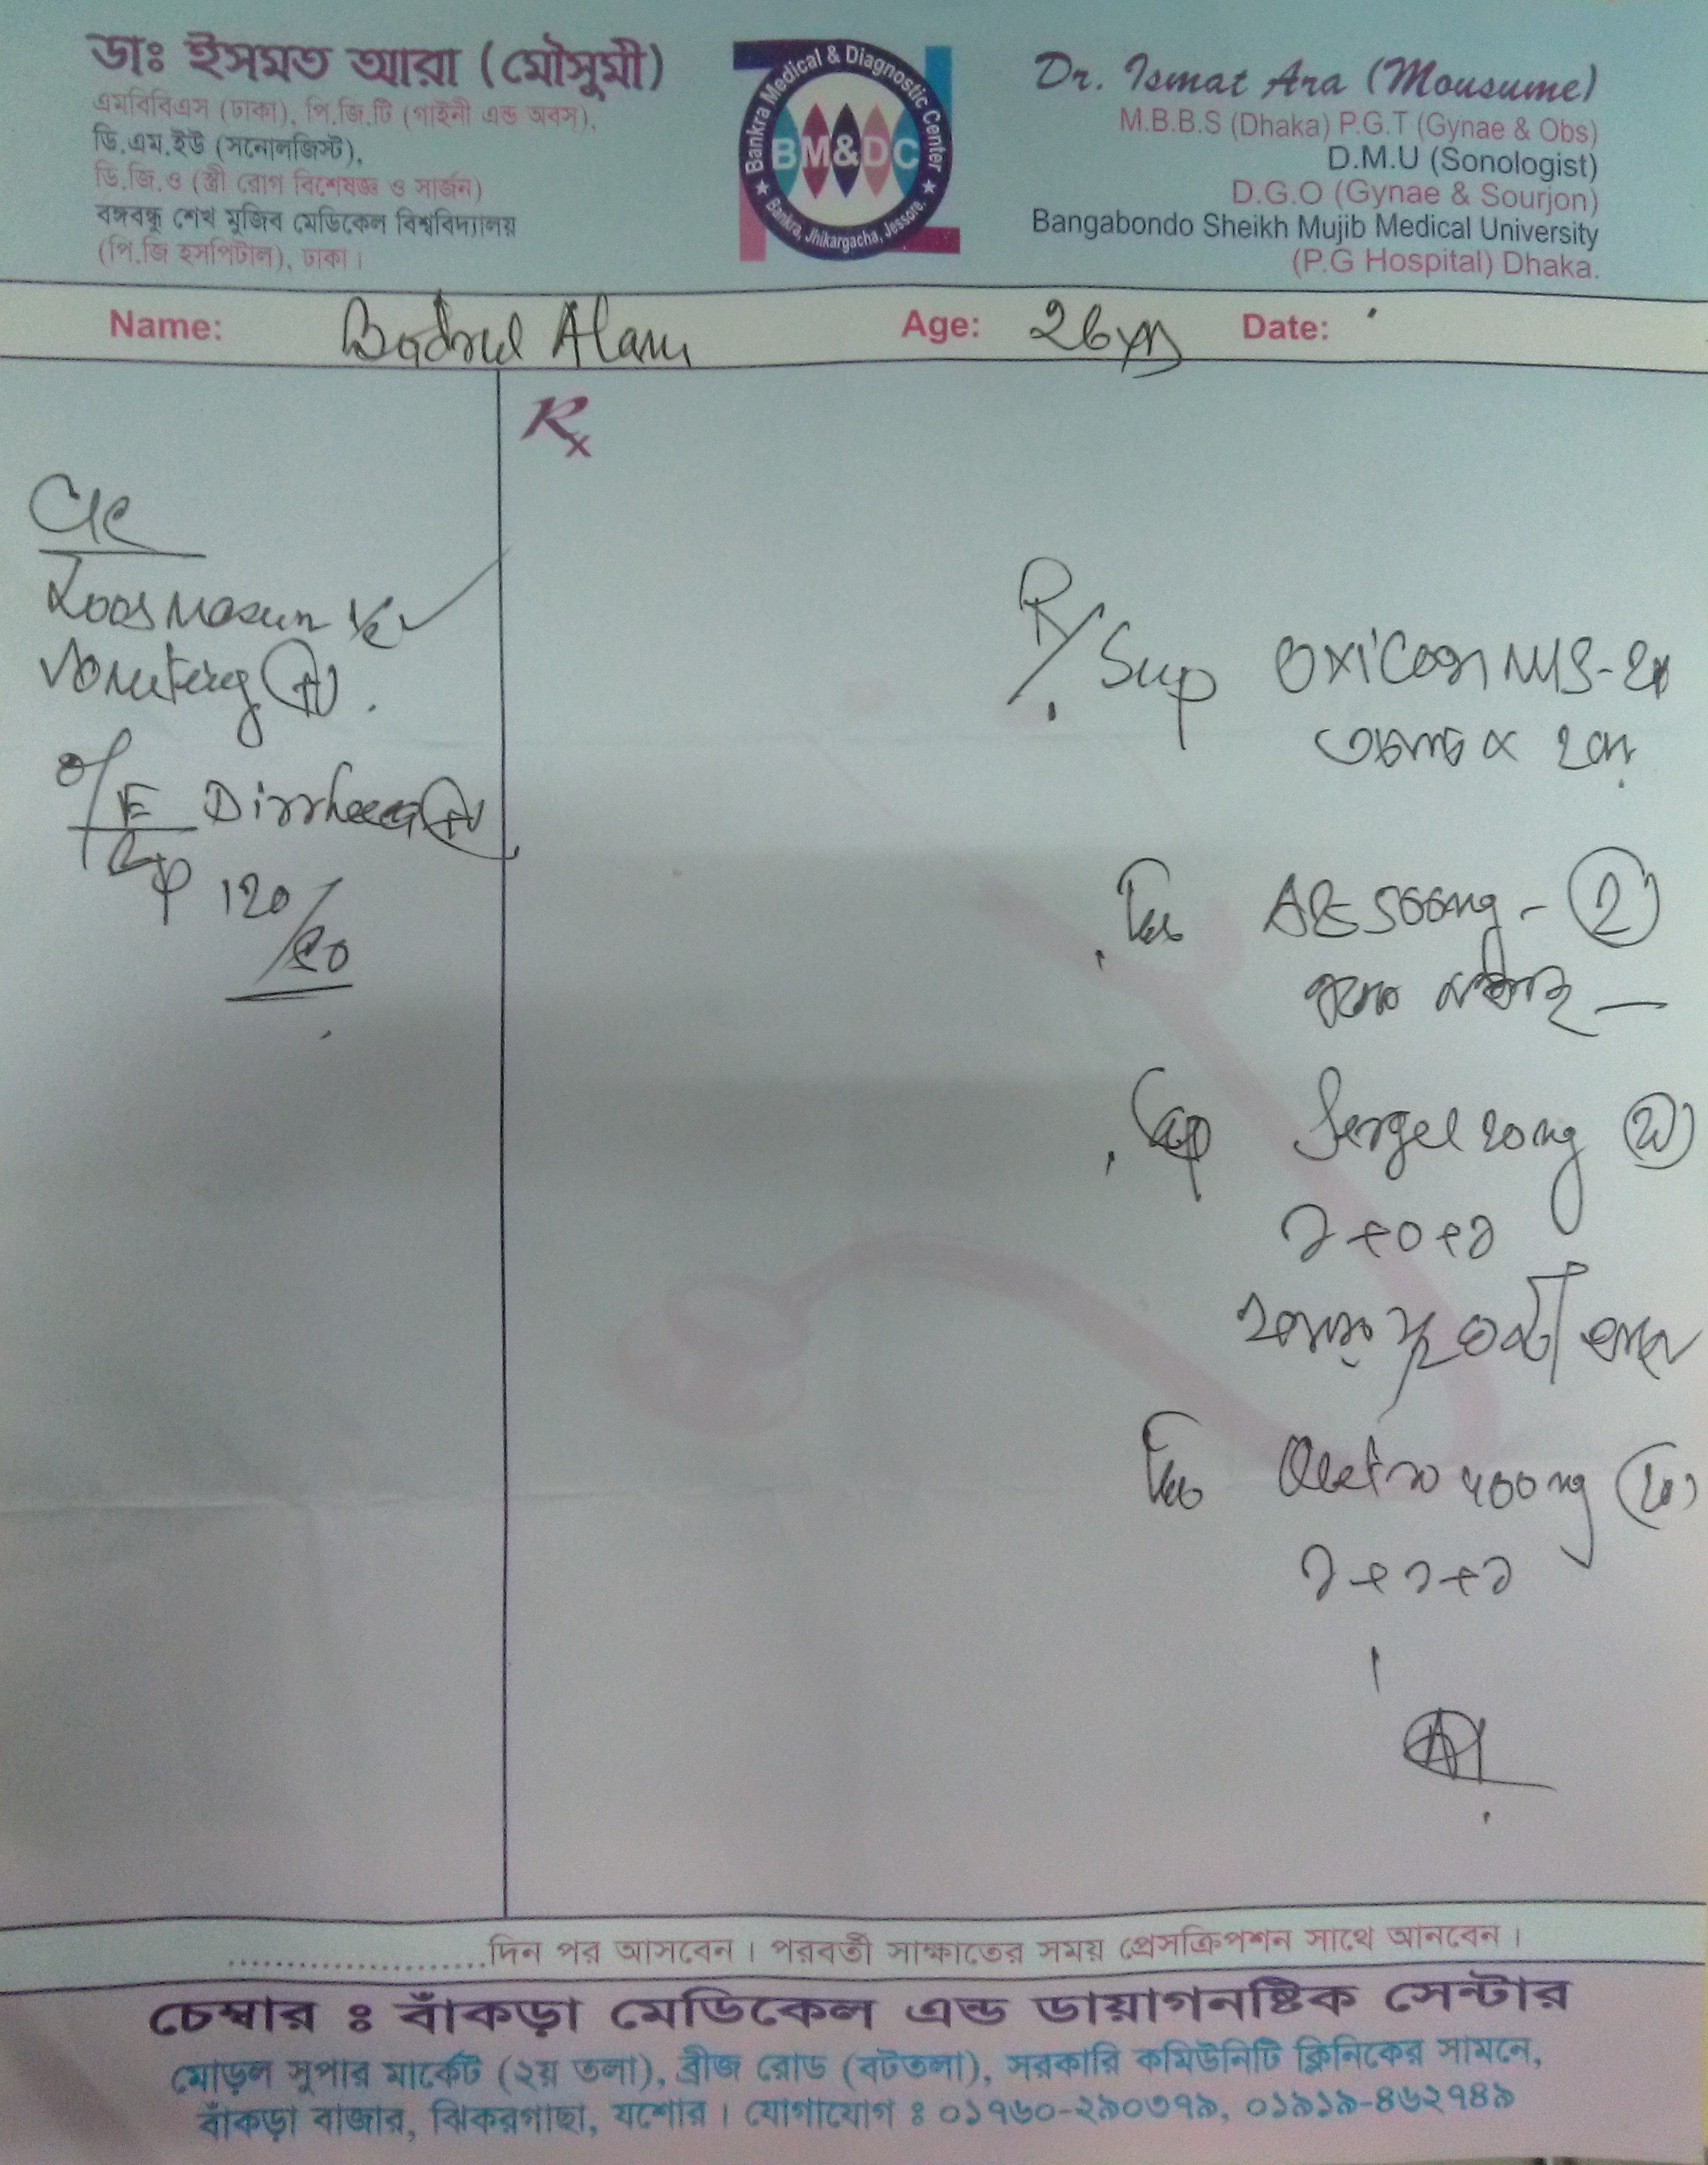 ডাঃ ইসমত আরা (মৌসুমী)
এমবিবিএস (ঢাকা), পি.জি.টি (গাইনী এন্ড অবস),
ডি.এম.ইউ (সনোলজিস্ট),
ডি.জি.ও (স্ত্রী রোগ বিশেষজ্ঞ ও সার্জন)
বঙ্গবন্ধু শেখ মুজিব মেডিকেল বিশ্ববিদ্যালয়
(পি.জি হসপিটাল), ঢাকা।
Bankra Medical & Diagnostic Center
BM&DC
Bankra, Jhikargacha, Jessore.
Dr. Ismat Ara (Mousume)
M.B.B.S (Dhaka) P.G.T (Gynae & Obs)
D.M.U (Sonologist)
D.G.O (Gynae & Sourjon)
Bangabondo Sheikh Mujib Medical University
(P.G Hospital) Dhaka.
Name: Badrul Alam Age: 26 yrs Date:
Rx
C/C
Vomiting (+)
O/E Dirrhoea (+)
Bp 120/80
R/ Sup
500mg - (2)
Cap Sergel 20mg
১+০+১
Tab 400mg
১+১+১
.......................দিন পর আসবেন। পরবর্তী সাক্ষাতের সময় প্রেসক্রিপশন সাথে আনবেন।
চেম্বার ঃ বাঁকড়া মেডিকেল এন্ড ডায়াগনষ্টিক সেন্টার
মোড়ল সুপার মার্কেট (২য় তলা), ব্রীজ রোড (বটতলা), সরকারি কমিউনিটি ক্লিনিকের সামনে,
বাঁকড়া বাজার, ঝিকরগাছা, যশোর। যোগাযোগ ঃ ০১৭৬০-২৯০৩৭৯, ০১৯১৯-৪৬২৭৪৯